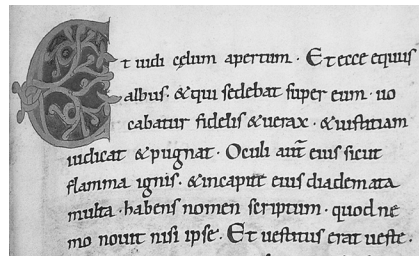 Et uidi cęlum apertum · Et ecce equus
albus · & qui sedebat super eum · uo
cabatur fidelis & uerax · & iustitiam
iudicat & pugnat · Oculi aut̄ eius sicut
flamma ignis · & in capite eius diademata
multa · habens nomen scriptum · quod ne
mo nouit nisi ipse · Et uestitus erat ueste ·